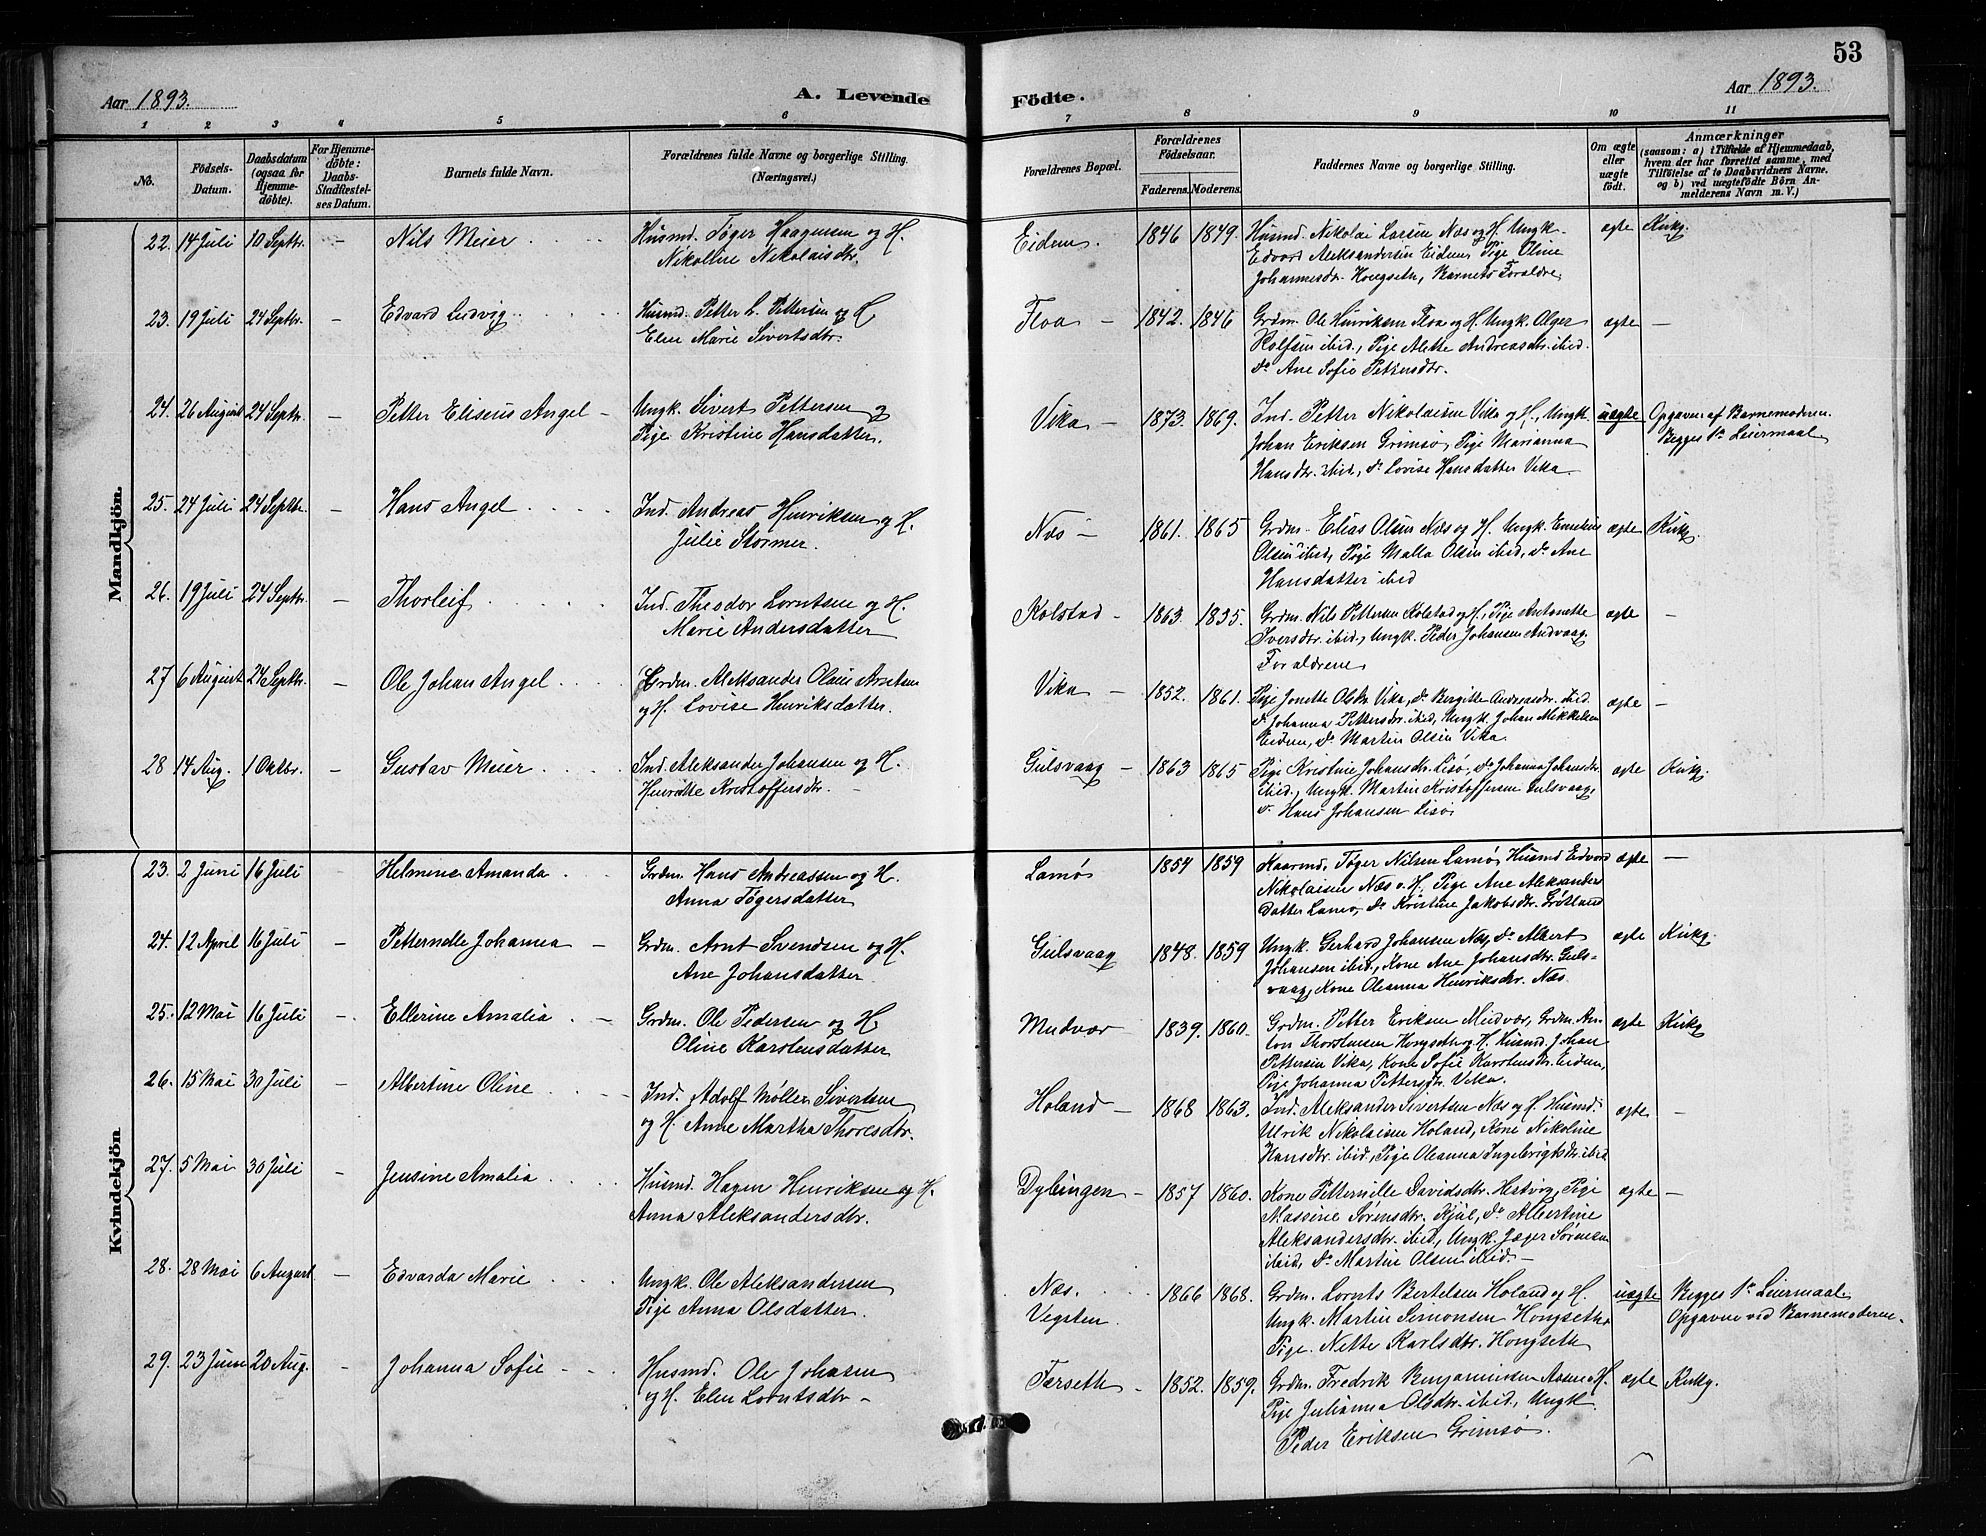 53
Aar 1893. A. Levende Födte. Aar 1893.
1 2 3 4 5 6 7 8 9 10 11
No. Födsels-Datum. Daabsdatum (ogsaa for Hjemme-döbte). For Hjemme-döbte: Daabs-Stadfæstel-ses Datum. Barnets fulde Navn. Forældrenes fulde Navne og borgerlige Stilling. (Næringsvei.) Forældrenes Bopæl. Forældrenes Födselsaar. Faderens. Moderens. Faddernes Navne og borgerlige Stilling. Om ægte eller uægte födt. Anmærkninger (saasom: a) i Tilfælde af Hjemmedaab, hvem der har forrettet samme, med Tilföielse af to Daabsvidners Navne. og b) ved uægtefödte Börn An-melderens Navn m. V.)
Mandkjön.
22. 14 Juli 10 Septbr. - Nils Meier Husmd. Tøger Haagensen og H. Eidem. 1846 1849. Husmd. Nikolai Larsen Næs og H. Ungk. ægte Kirkg.
Nikoline Nikolaisdtr. Edvard Aleksandersen Eidem, Pige Oline
Johannesdtr. Hongseth, Barnets Forældre
23. 19 Juli 24 Septbr. - Edvard Ludvig Husmd. Petter L. Pettersen og H Floa - 1842. 1846 Grdm. Ole Henriksen Floa og H. Ungk. Olger ægte -
Elen Marie Sivertsdtr. Rolfsen ibid., Pige Alette Andreasdtr. ibid.
do Ane Sofie Petersdtr.
24. 26 August 24 Septbr. - Petter Eliseus Angel - Ungk. Sivert Pettersen og Vika - 1873. 1869. Ind. Petter Nikolaisen Vika og H., Ungk. uægte Opgaven af Barnemoderen.
Pige Kristine Hansdatter. Johan Eriksen Grimsø, Pige Marianna Begges 1ste Leiermaal
Hansdtr. ibid., do Lovise Hansdatter Vika
25. 24 Juli 24 Septbr. - Hans Angel Ind. Andreas Henriksen og H. Næs - 1861. 1865 Grdm. Elias Olsen Næs og H. Ungk. Emelius ægte Kirkg.
Julie Stormer. Olsen ibid, Pige Malla Olsen ibid, do Ane
Hansdatter ibid
26. 19 Juli 24 Septbr. - Thorleif Ind. Theodor Lorntsen og H. Kolstad - 1863. 1835. Grdm. Nils Pettersen Kolstad og H., Pige Antonette ægte -
Marie Andersdatter Iversdtr. ibid., Ungk. Peder Johansen Andvaag
Forældrene
27 6 August 24 Septbr. - Ole Johan Angel Grdm. Aleksander Olaus Arntsen Vika - 1852. 1861. Pige Jonette Olsdtr Vika, do Bergitte Andreasdtr. ibid ægte -
og H. Lovise Henriksdatter. do Johanna Pettersdtr. ibid, Ungk. Johan Mikkelsen
Eidem, do Martin Olsen Vika.
28 14 Aug. 1 Oktbr. - Gustav Meier Ind. Aleksander Johansen og H. Gulsvaag - 1863 1865 Pige Kristine Johansdtr. Lisø, do Johanna Johansdtr. ægte Kirkg.
Henrikke Kristoffersdtr. - ibid., Ungk. Martin Kristoffersen Gulsvaag,
do Hans Johansen Lisø
Kvindekjön
23. 2 Juni 16 Juli - Helmine Amanda Grdm. Hans Andreassen og H. Lamø 1854 1859 Kaarmd. Tøger Nilsen Lamø, Husmd Edvard ægte -
Anna Tøgersdatter Nikolaisen Næs o. H., Pige Ane Aleksanders
datter Lamø, do Kristine Jakobsdtr.
24. 12 April 16 Juli - Petternelle Johanna - Grdm. Arnt Svendsen og H. Gulsvaag 1848. 1859 Ungk. Gerhard Johansen Næs, do Albert ægte Kirkg.
Ane Johansdatter. Johansen ibid., Kone Ane Johansdtr. Guls-
vaag, Kone Oleanna Henriksdtr. Næs.
25. 12 Mai 16 Juli - Ellerine Amalia - Grdm. Ole Pedersen og H Mudvær 1839. 1860. Grdm. Petter Eriksen Mudvær, Grdm. An- ægte Kirkg
Oline Karstensdatter ton Thorstensen Hongseth og H. Husmd. Johan
Pettersen Vika, Kone Sofie Karstensdtr. Eidem,
Pige Johanna Pettersdtr. Vika.
26. 15 Mai 30 Juli - Albertine Oline Ind. Adolf Møller Sivertsen Holand - 1868 1863. Ind. Aleksander Sivertsen Næs og H. Husmd. ægte -
og H. Anne Martha Thoresdtr. Ulrik Nikolaisen Holand, Kone Nikoline
Hansdtr. ibid., Pige Oleanna Ingebrigtsdtr. ibid
27. 5 Mai 30 Juli - Jensine Amalia Husmd. Hagen Henriksen og H. Dybingen - 1857 1860. Kone Petternille Davidsdtr. Hestvog, Pige ægte -
Anna Aleksandersdtr. Massine Sørensdtr. Kjul, do Albertine
Aleksandersdtr. ibid, Ungk. Jæger Sørensen
ibid, do Martin Olsen ibid. -
28. 28 Mai 6 August - Edvarda Marie Ungk. Ole Aleksandersen Næs. 1866 1868. Grdm. Lornts Bertelsen Holand og H. uægte Begges 1ste Leiermaal
Pige Anna Olsdatter. Vegsten. Ungk. Martin Simonsen Hongseth Opgaven ved Barnemoderen.
Pige Nette Karlsdtr. Hongseth
29. 23 Juni 20 Aug. - Johanna Sofie - Husmd. Ole Johasen Forseth - 1852. 1859. Grdm. Fredrik Benjaminsen Aasen o. H. ægte Kirkg.
og H. Elen Lorntsdtr - Pige Julianna Olsdtr. ibid, Ungk
Peder Eriksen Grimsø.